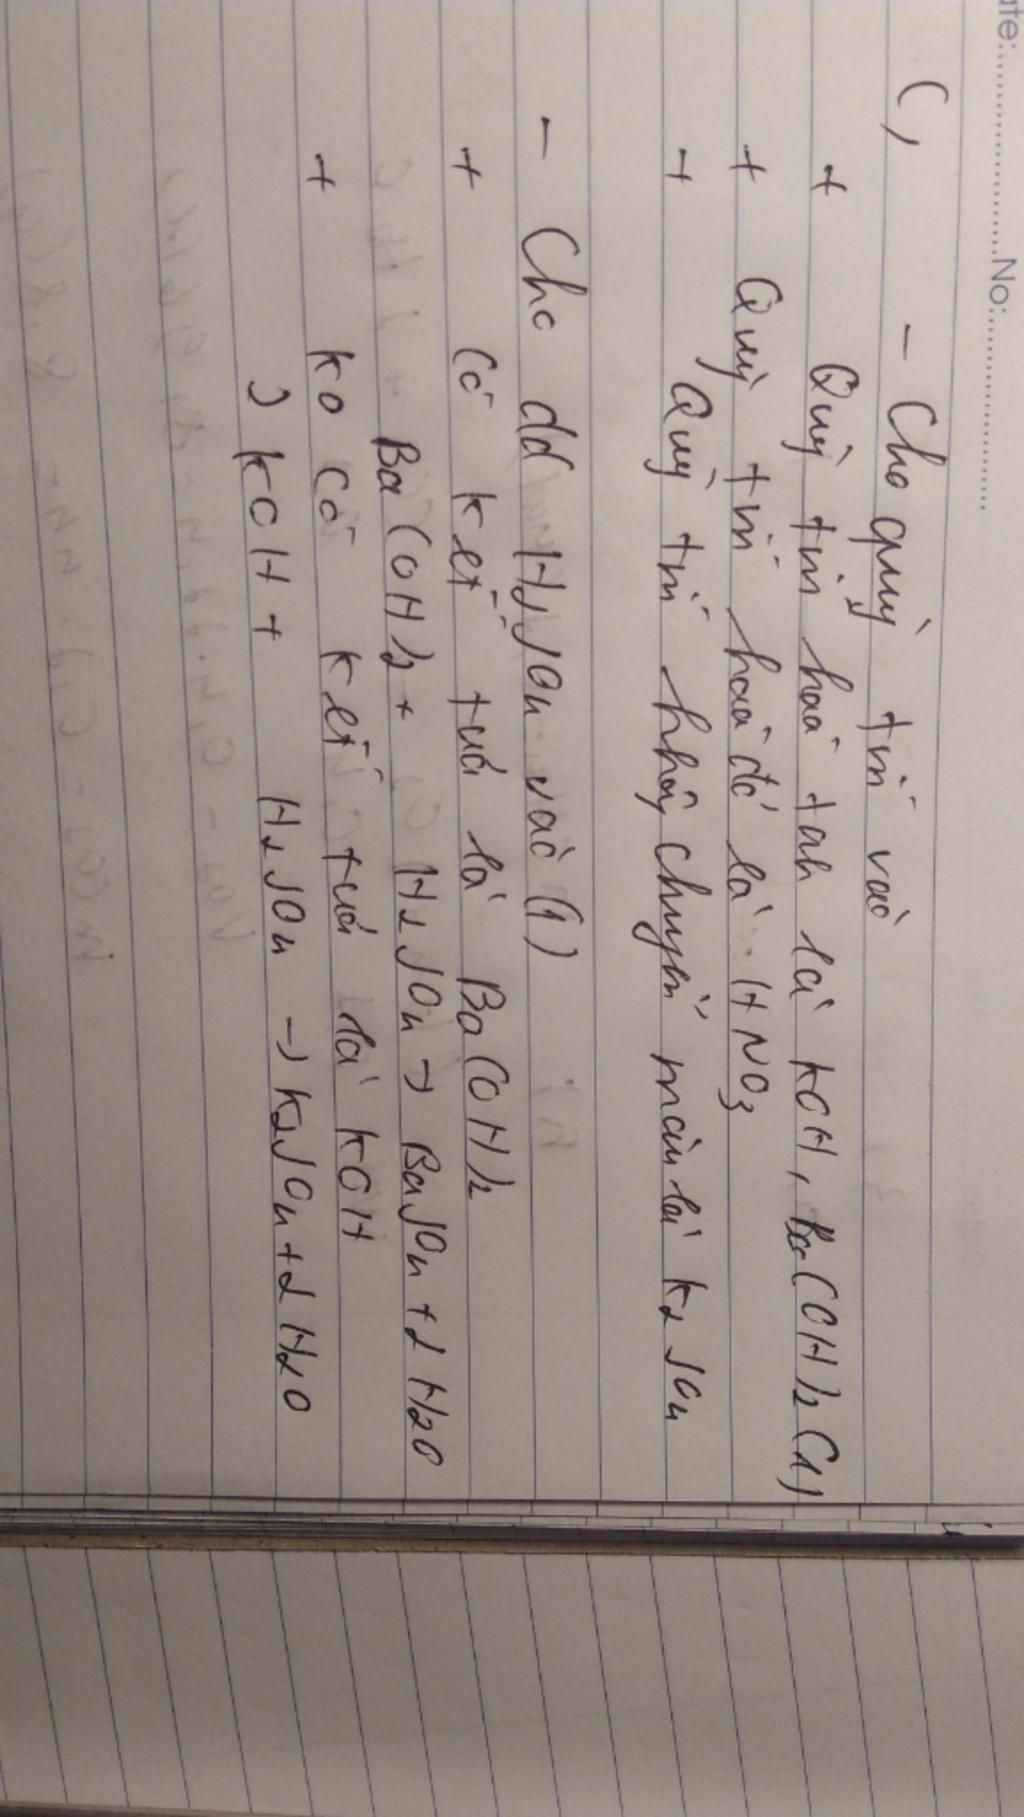 ate:.....................No:.....................
C, - Cho quỳ tím vào
+ Quỳ tím hoá xanh là KOH, Ba(OH)2 (1)
+ Quỳ tím hoá đỏ là HNO3
+ Quỳ tím không chuyển màu là K2SO4
- Cho dd H2SO4 vào (1)
+ Có kết tủa là Ba(OH)2
Ba(OH)2 + H2SO4 → BaSO4 + 2H2O
+ ko có kết tủa là KOH
2KOH + H2SO4 → K2SO4 + 2H2O